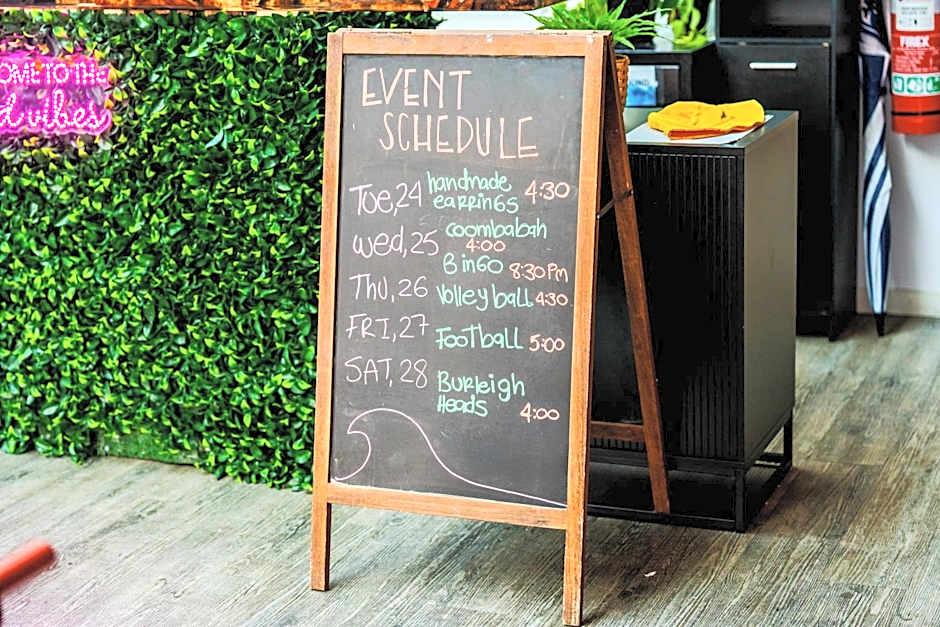 OME TO THE
d vibes
EVENT
SCHEDULE
Tue, 24 handmade earrings 4:30
Wed, 25 Coombabah 4:00
Bingo 8:30 Pm
Thu, 26 Volleyball 4:30
FRI, 27 Football 5:00
SAT, 28 Burleigh Heads 4:00
FIREX